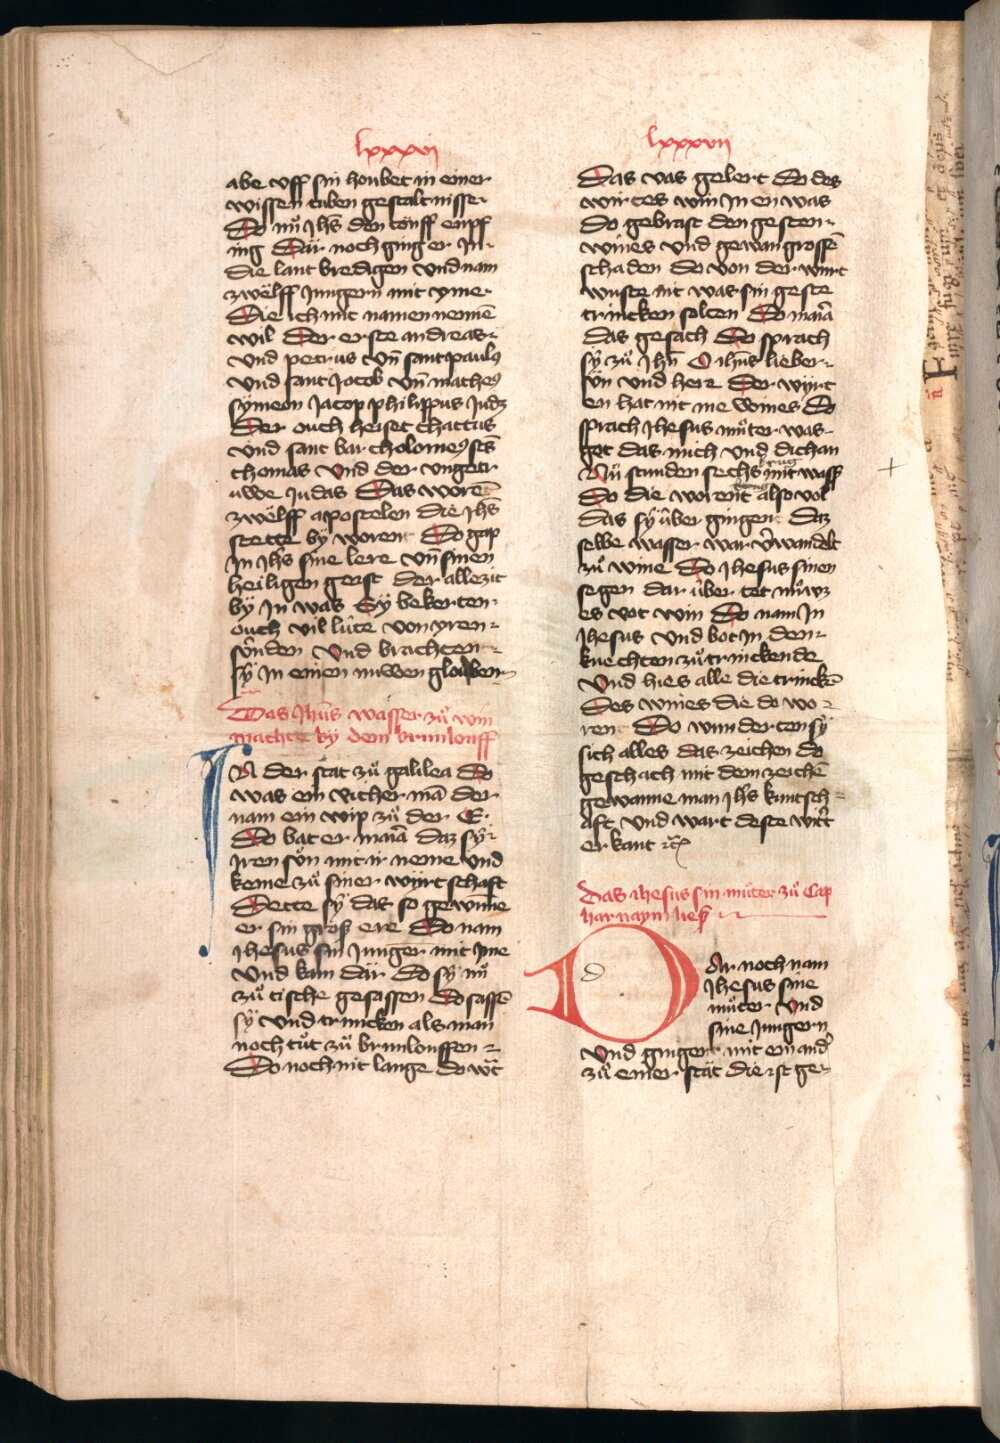 lxxxvi
abe vff sin houbet in einer
wissen tuben gestaltnisse
Do nuͦ Jhs den touff enpf
ing Dar noch ging er In
die lant bredigen vnd nam
zwoͤlff Jungern mit yme
Die ich mit namen nemē
wil Der erste andreas
vnd petrus vn̄ sant paulꝰ
vnd sant Jocob vn̄ matheꝰ
symeon Jacop philippus Judz
Der ouch heiset thattus
vnd sant bartholomeꝰ sts
thomas vnd der vngetr
uwe Judas Das worē
zwoͤlff apostelen die Jhs
stette by woren Do gap
In Jhs sine lere vn̄ sinen
heiligen geist der allezit
by In was Sy bekerten
ouch vil luͤte von yren
suͤnden vnd brachten
sy In einen nuwen glouben
Das Jhūs wasser zuͦ win
machte by dem brunlouff
IN der stat zuͦ galilea do
was ein richer mā der
nam ein wip zuͦ der E
Do bat er maīa daz sy
Iren suͦn mit ir neme vnd
keme zuͦ siner wyrtschaft
Dette sy das so gewūne
er sin gros ere Do nam
Jhesus sin Junger mit Ime
vnd kam dar Do sy nuͦ
zuͦ tische gesassen Do sassē
sy vnd trincken als man
noch tuͦt zuͦ brunlouffen
Do noch nit lange do wͣt
lxxxvii
Das vas gelert Do des
wirtes win In en was
Do gebrast den gesten
wines vnd gewan grossē
schaden do von der wirt
wuste nit was sin geste
trincken solten Do maīa
das gesach Do sprach
sy zuͦ Jhū O ihūs lieber
suͦn vnd here Der wyrt
en hat nit me wines Do
sprach Jhesus muͦter was
got das mich vnd dich an
Nuͦ stunden sechs krug mit wass
Do die worent also vol
das sy uͤber gingen Daz
selbe wasser war v̓wandelt
zuͦ wine Do Jhesus sinen
segen dar uͤber tet
es rot win Do nam In
Jhesus vnd bot In den
knechten zuͦ trinckende
vnd hies alle die trinckē
Des wines die do wo
ren Do wundertensy
sich alles das zeichen do
geschach mit dem zeichē
gewanne man Jhs kuntsch
aft vnd wart deste
erkant
Das ihesus sin muͤter zuͦ Cap
harnaym lies
DAr noch nam
Jhesus sine
muͦter vnd
sine Jungern
vnd gingent mit ein and̓
zuͦ einer stat die ist ge